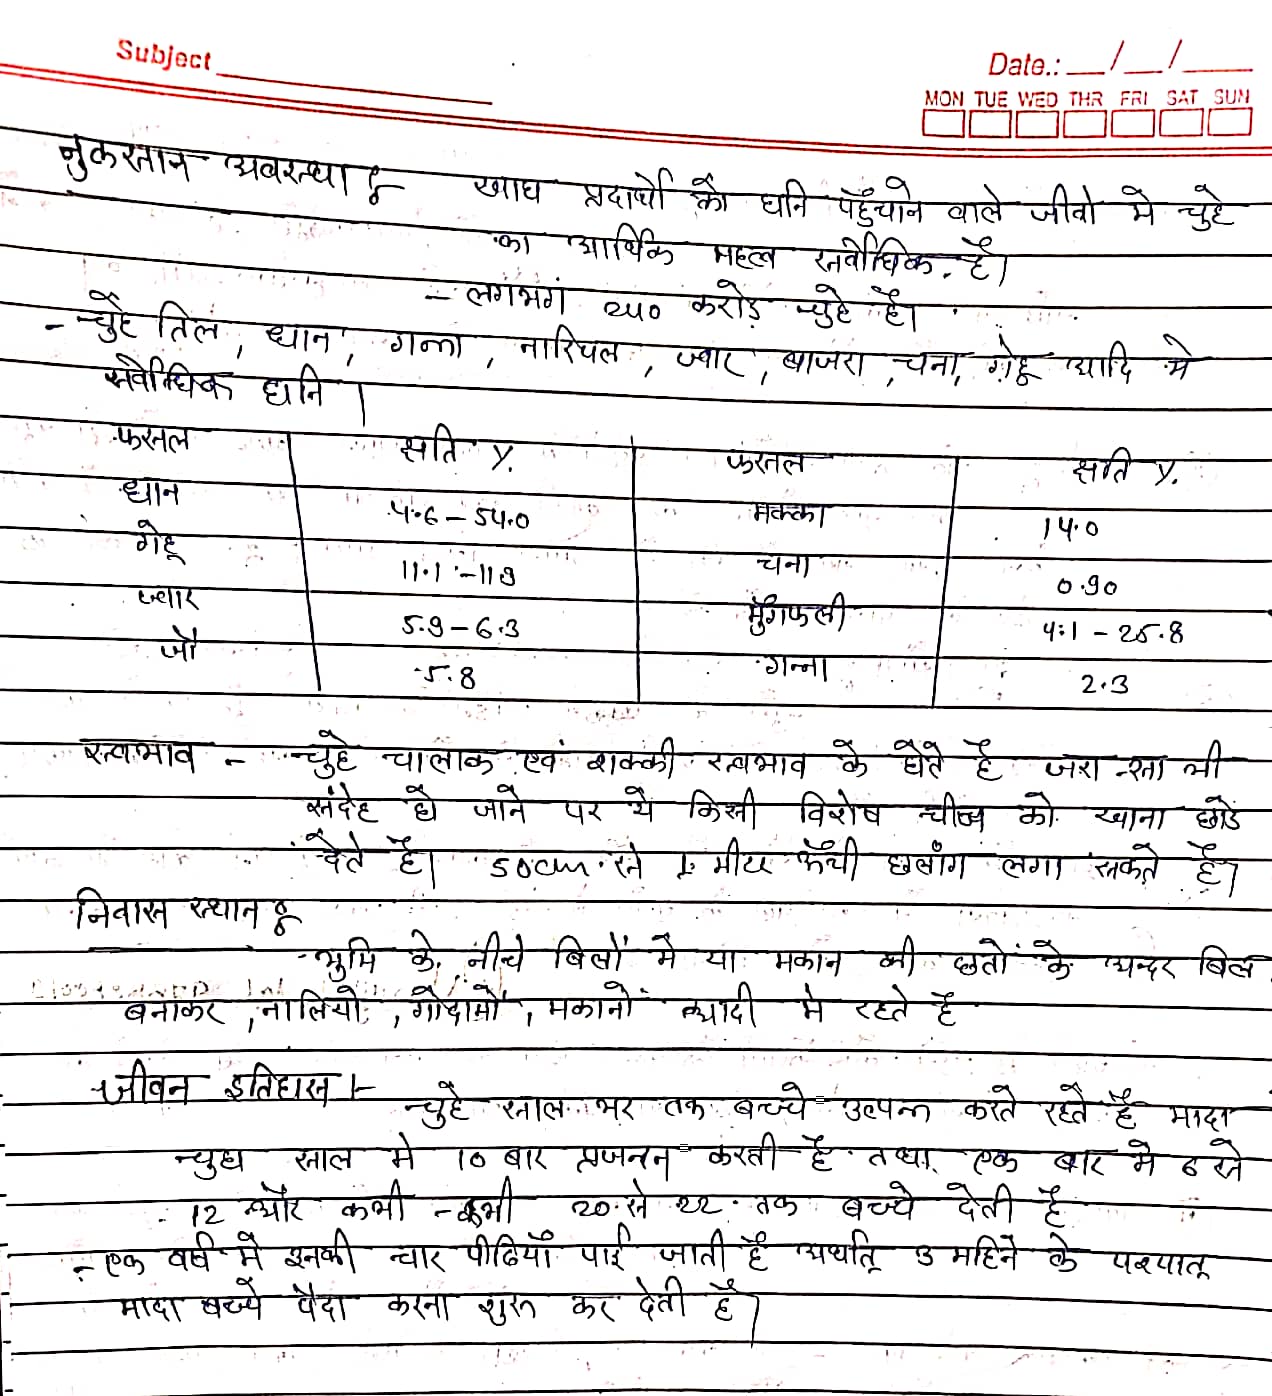 Subject
Date.: __/__/__
MON TUE WED THR FRI SAT SUN
नुकसान अवस्था :- खाद्य प्रदार्थो को हानि पहुँचाने वाले जीवो मे चुहे
का आर्थिक महत्व सर्वाधिक है।
- लगभग 240 करोड़ चुहे है।
- चुहे तिल, धान, गन्ना, नारियल, ज्वार, बाजरा, चना, गेहू आदि मे
सर्वाधिक हानि।
फसल क्षति %. फसल क्षति %.
धान 4.6 - 54.0 मक्का 14.0
गेहू 11.1 - 119 चना 0.90
ज्वार 5.9 - 6.3 मुँगफली 4.1 - 25.8
जौ 5.8 गन्ना 2.3
स्वभाव - चुहे चालाक एवं शक्की स्वभाव के होते है जरा सा भी
संदेह हो जाने पर ये किसी विशेष चीज को खाना छोड़
देते है। 50cm से 1 मीटर ऊँची छलाँग लगा सकते है।
निवास स्थान :
- भुमि के नीचे बिलों मे या मकान की छतों के अन्दर बिल
बनाकर, नालियो, गोदामों, मकानों आदी मे रहते है
जीवन इतिहास :-
चुहे साल भर तक बच्चे उत्पन्न करते रहते है मादा
चुहा साल मे 10 बार प्रजनन करती है तथा एक बार मे 6 से
12 और कभी-कभी 20 से 22 तक बच्चे देती है
- एक वर्ष मे इनकी चार पीढियाँ पाई जाती है अर्थात् 3 महिने के पश्चात्
मादा बच्चे पैदा करना शुरू कर देती है।